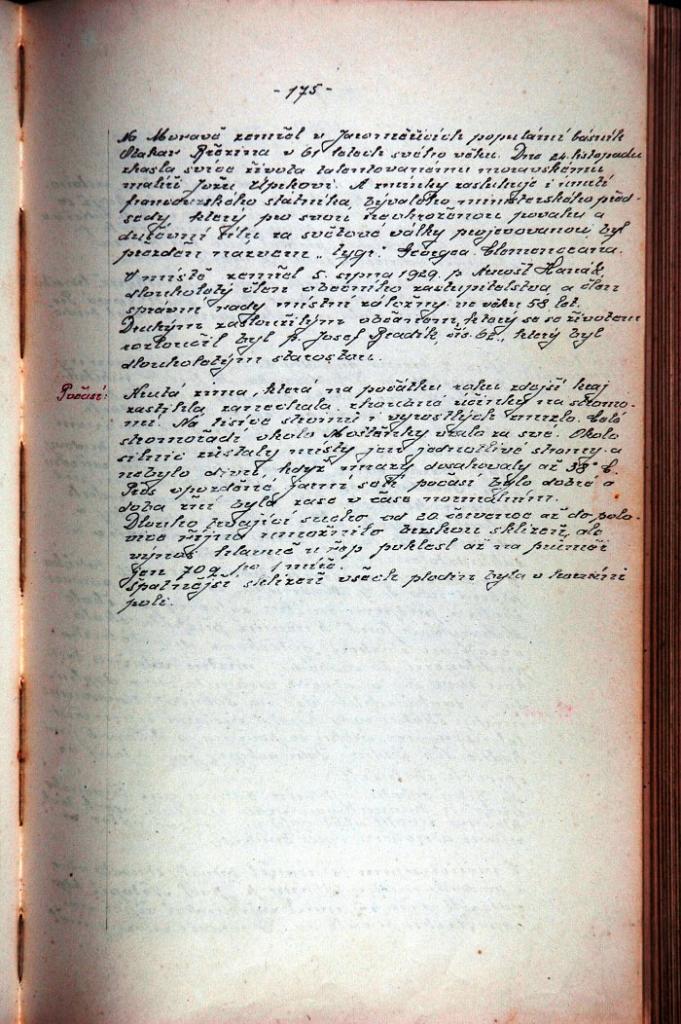 - 175 -
Na Moravě zemřel v Jaroměřicích populární básník
Otakar Březina v 61 letech svého věku. Dne 24. listopadu
zhasla svíce života talentovanému moravskému
malíři Jožu Úprkovi. A zmínky zasluhuje i úmrtí
francouzského státníka, bývalého ministerského před-
sedy, který pro svou povahu a
duševní sílu za světové války projevovanou, byl
přezděn názvem „tygr" Georgea Clemenceaua.
V místě zemřel 5. srpna 1929 p. Hanák,
dlouholetý člen obecního zastupitelstva a člen
správní rady místní záložny ve věku 58 let.
Druhým zasloužilým občanem, který se se životem
rozloučil byl p. Josef Bradík, čís. 62., který byl
dlouholetým starostou.
Počasí: Krutá zima, která na počátku roku zdejší kraj
zastihla, zanechala zhoubné účinky na stromo-
ví. Na tisíce stromů i vyrostlých zmrzlo. Celé
stromořadí okolo Moštěnky vzalo za své. Okolo
silnic zůstaly místy jen jednotlivé stromy a
nebylo divu, když mrazy dosahovaly až 38° C.
Přes opožděné jarní setí počasí bylo dobré a
doba žní byla zase v čase normálním.
Dlouho trvající sucho od 20 července až do polo-
vice října umožnilo brzkou sklizeň, ale
výnos hlavně u řep poklesl až na průměr
jen 70 q po 1 míře.
Špatnější sklizeň všech plodin byla v horním
poli.